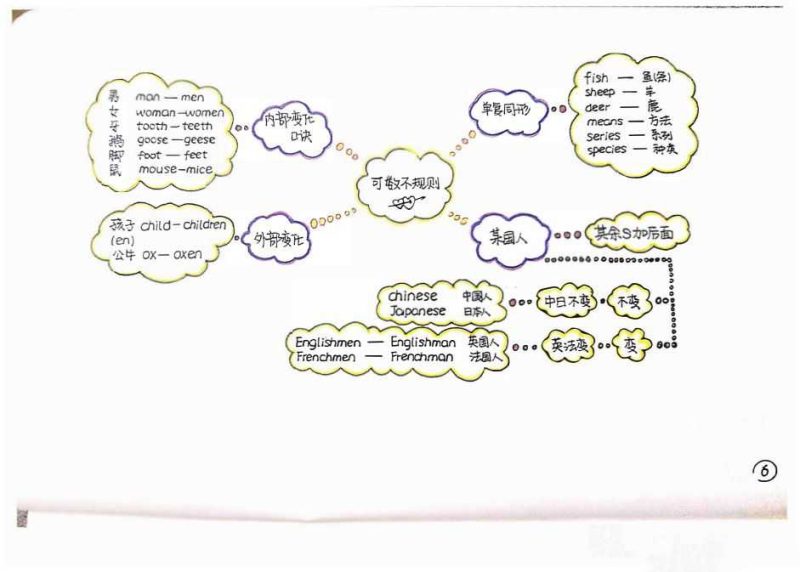 男 man — men
女 woman — women
牙 tooth — teeth
鹅 goose — geese
脚 foot — feet
鼠 mouse — mice
内部变化
口诀
单复同形
fish — 鱼(条)
sheep — 羊
deer — 鹿
means — 方法
series — 系列
species — 种类
可数不规则
孩子 child — children
(en)
公牛 ox — oxen
外部变化
某国人
其余S加后面
chinese 中国人
Japanese 日本人
中日不变
不变
Englishmen — Englishman 英国人
Frenchmen — Frenchman 法国人
英法变
变
6